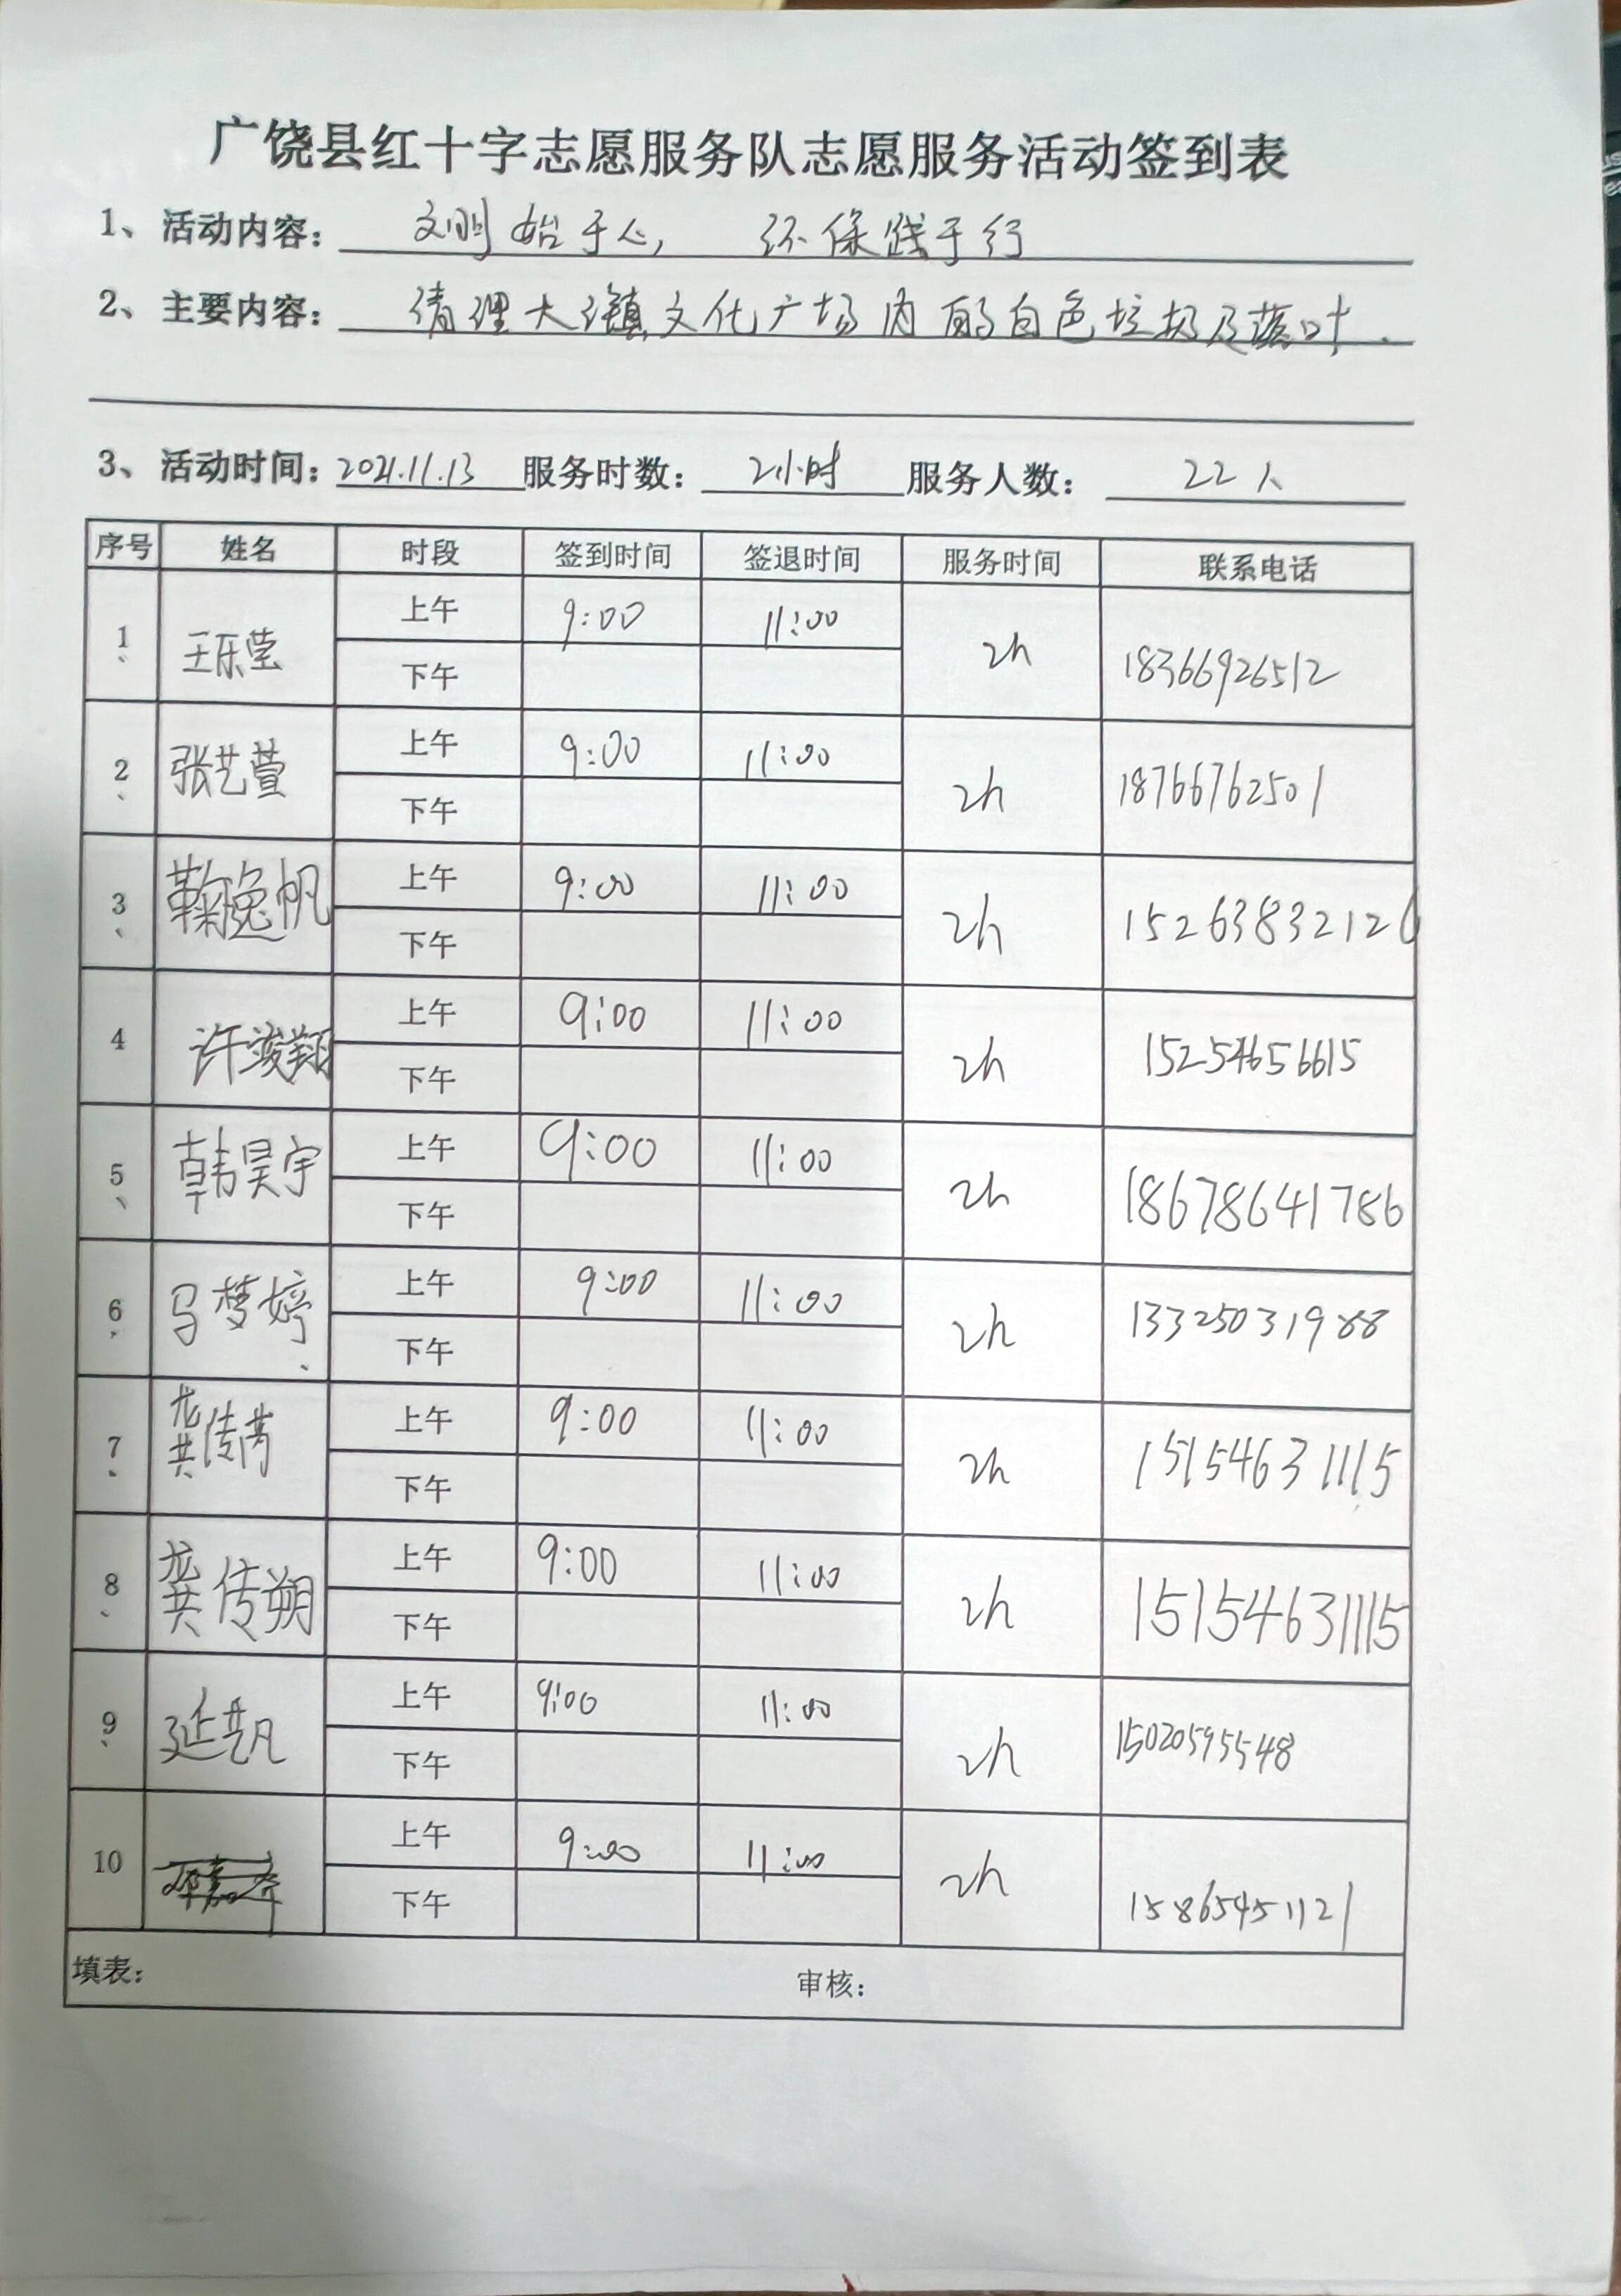 广饶县红十字志愿服务队志愿服务活动签到表
1、活动内容：文明始于心，环保践于行
2、主要内容：清理大王镇文化广场内的白色垃圾及落叶.
3、活动时间：2021.11.13 服务时数：2小时 服务人数：22人
序号 姓名 时段 签到时间 签退时间 服务时间 联系电话
1、 王乐莹 上午 9:00 11:00 2h 18366926512
下午
2、 张艺萱 上午 9:00 11:00 2h 18766762501
下午
3、 鞠逸帆 上午 9:00 11:00 2h 15263832126
下午
4 许竣翔 上午 9:00 11:00 2h 15254656615
下午
5、 韩昊宇 上午 9:00 11:00 2h 18678641786
下午
6、 马梦婷 上午 9:00 11:00 2h 13325031988
下午
7、 龚传 上午 9:00 11:00 2h 15154631115
下午
8、 龚传朔 上午 9:00 11:00 2h 15154631115
下午
9、 延艺凡 上午 9:00 11:00 2h 15020595548
下午
10 上午 9:00 11:00 2h 15865451121
下午
填表： 审核：